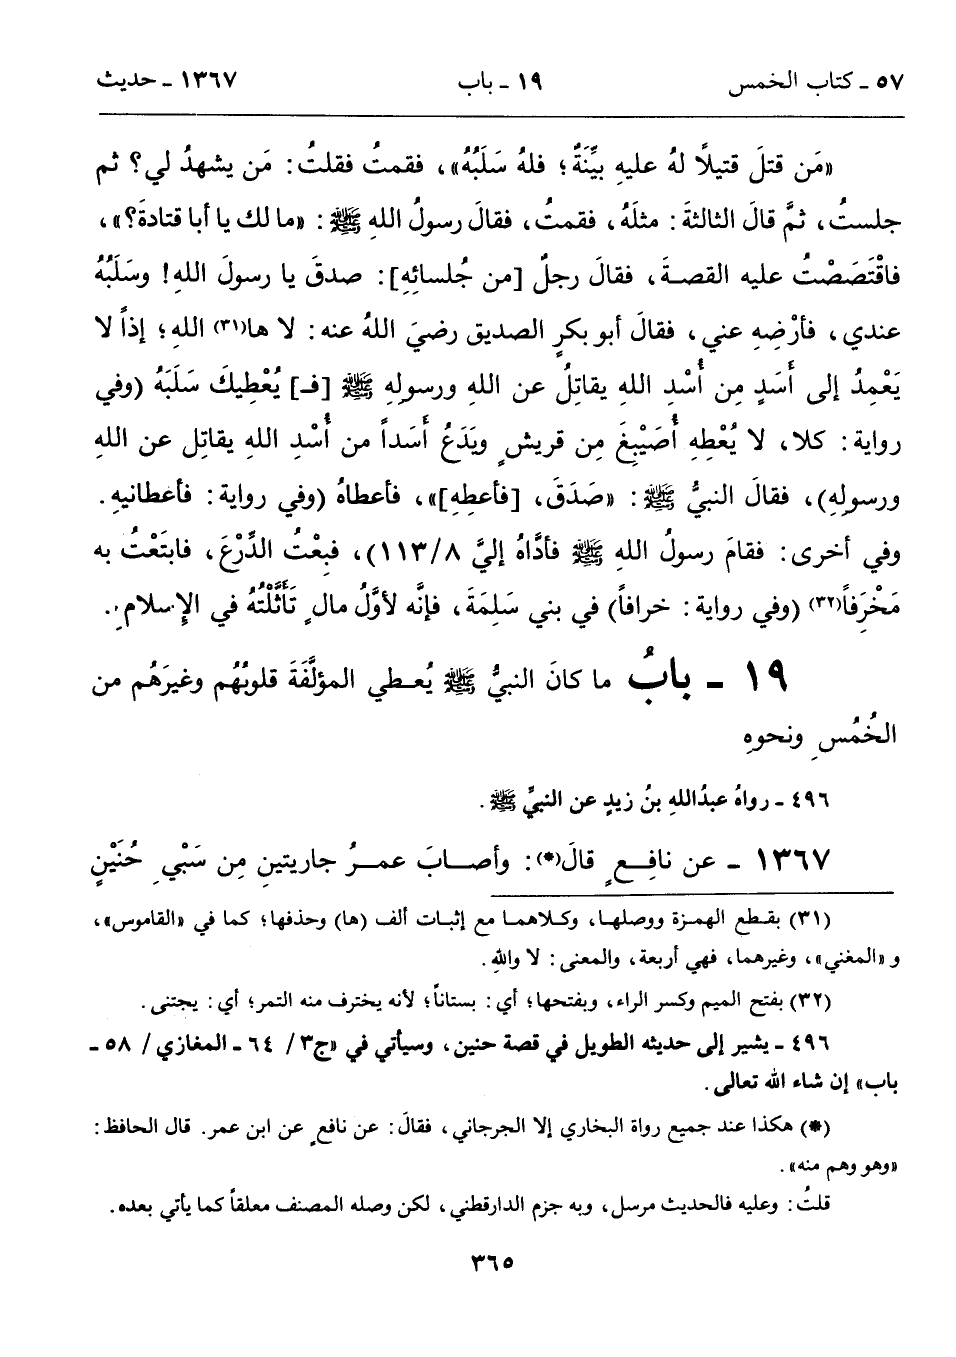 ٥٧ ـ كتاب الخمس
١٩ ـ باب
١٣٦٧ ـ حديث
«مَن قتلَ قتيلًا لهُ عليهِ بيِّنَةٌ؛ فلهُ سَلَبُهُ»، فقمتُ فقلتُ: مَن يشهدُ لي؟ ثم
جلستُ، ثمَّ قالَ الثالثةَ: مثلَهُ، فقمتُ، فقالَ رسولُ اللهِ ﷺ: «ما لك يا أبا قتادةَ؟»،
فاقْتَصَصْتُ عليه القصـةَ، فقالَ رجلٌ [من جُلسائِهِ]: صدقَ يا رسولَ اللهِ! وسَلَبُهُ
عندي، فأرْضِهِ عني، فقالَ أبو بكرٍ الصديق رضيَ اللهُ عنه: لا ها(٣١) اللهِ؛ إذاً لا
يَعْمِدُ إلى أَسَدٍ مِن أُسْدِ اللهِ يقاتلُ عن اللهِ ورسولِهِ ﷺ [فـ] يُعْطِيكَ سَلَبَهُ (وفي
رواية: كلا، لا يُعْطِهِ أُصَيْبِغَ مِن قريشٍ ويَدَعُ أَسَداً من أُسْدِ اللهِ يقاتل عن اللهِ
ورسولِهِ)، فقالَ النبيُّ ﷺ: «صَدَقَ، [فأعطِهِ]»، فأعطاهُ (وفي رواية: فأعْطانيهِ.
وفي أخرى: فقامَ رسولُ اللهِ ﷺ فأدَّاهُ إليَّ ٨/١١٣)، فبِعْتُ الدِّرْعَ، فابتَعْتُ به
مَخْرَفاً(٣٢) (وفي رواية: خرافاً) في بني سَلِمَةَ، فإنَّه لأوَّلُ مالٍ تَأَثَّلْتُهُ في الإسلامِ.
١٩ ـ بابُ ما كانَ النبيُّ ﷺ يُعـطي المؤلَّفَةَ قلوبُهُم وغيرَهُم من
الخُمُسِ ونحوِهِ
٤٩٦ ـ رواهُ عبدُاللهِ بنُ زيدٍ عن النبيِّ ﷺ.
١٣٦٧ ـ عن نافِـعٍ قالَ(*): وأصـابَ عمـرُ جاريتينِ مِن سَبْيِ حُنَيْنٍ
(٣١) بقـطع الهمـزة ووصلهـا، وكـلاهمـا مع إثبـات ألف (ها) وحذفها؛ كما في «القاموس»،
و «المغني»، وغيرهما، فهي أربعة، والمعنى: لا واللهِ.
(٣٢) بفتح الميم وكسر الراء، وبفتحها؛ أي: بستاناً؛ لأنه يخترف منه التمر؛ أي: يجتنى.
٤٩٦ ـ يشير إلى حديثه الطويل في قصة حنين، وسيأتي في «ج٣ / ٦٤ ـ المغازي / ٥٨ ـ
باب» إن شاء الله تعالى.
(*) هكذا عند جميع رواة البخاري إلا الجرجاني، فقالَ: عن نافعٍ عن ابن عمر. قال الحافظ:
«وهو وهم منه».
قلتُ: وعليه فالحديث مرسل، وبه جزم الدارقطني، لكن وصله المصنف معلقاً كما يأتي بعده.
٣٦٥